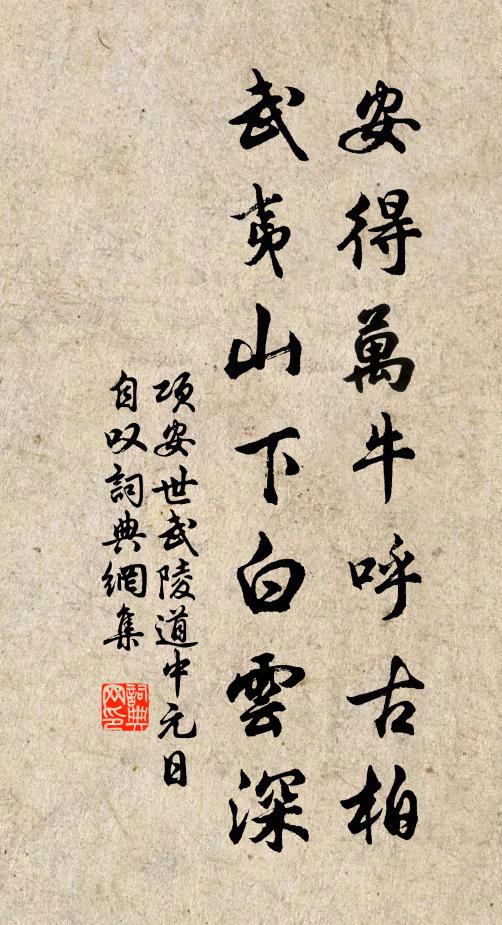 安得萬牛呼古柏
武夷山下白雲深
項安世武陵道中元日
自叹詞典網集
詞典网印